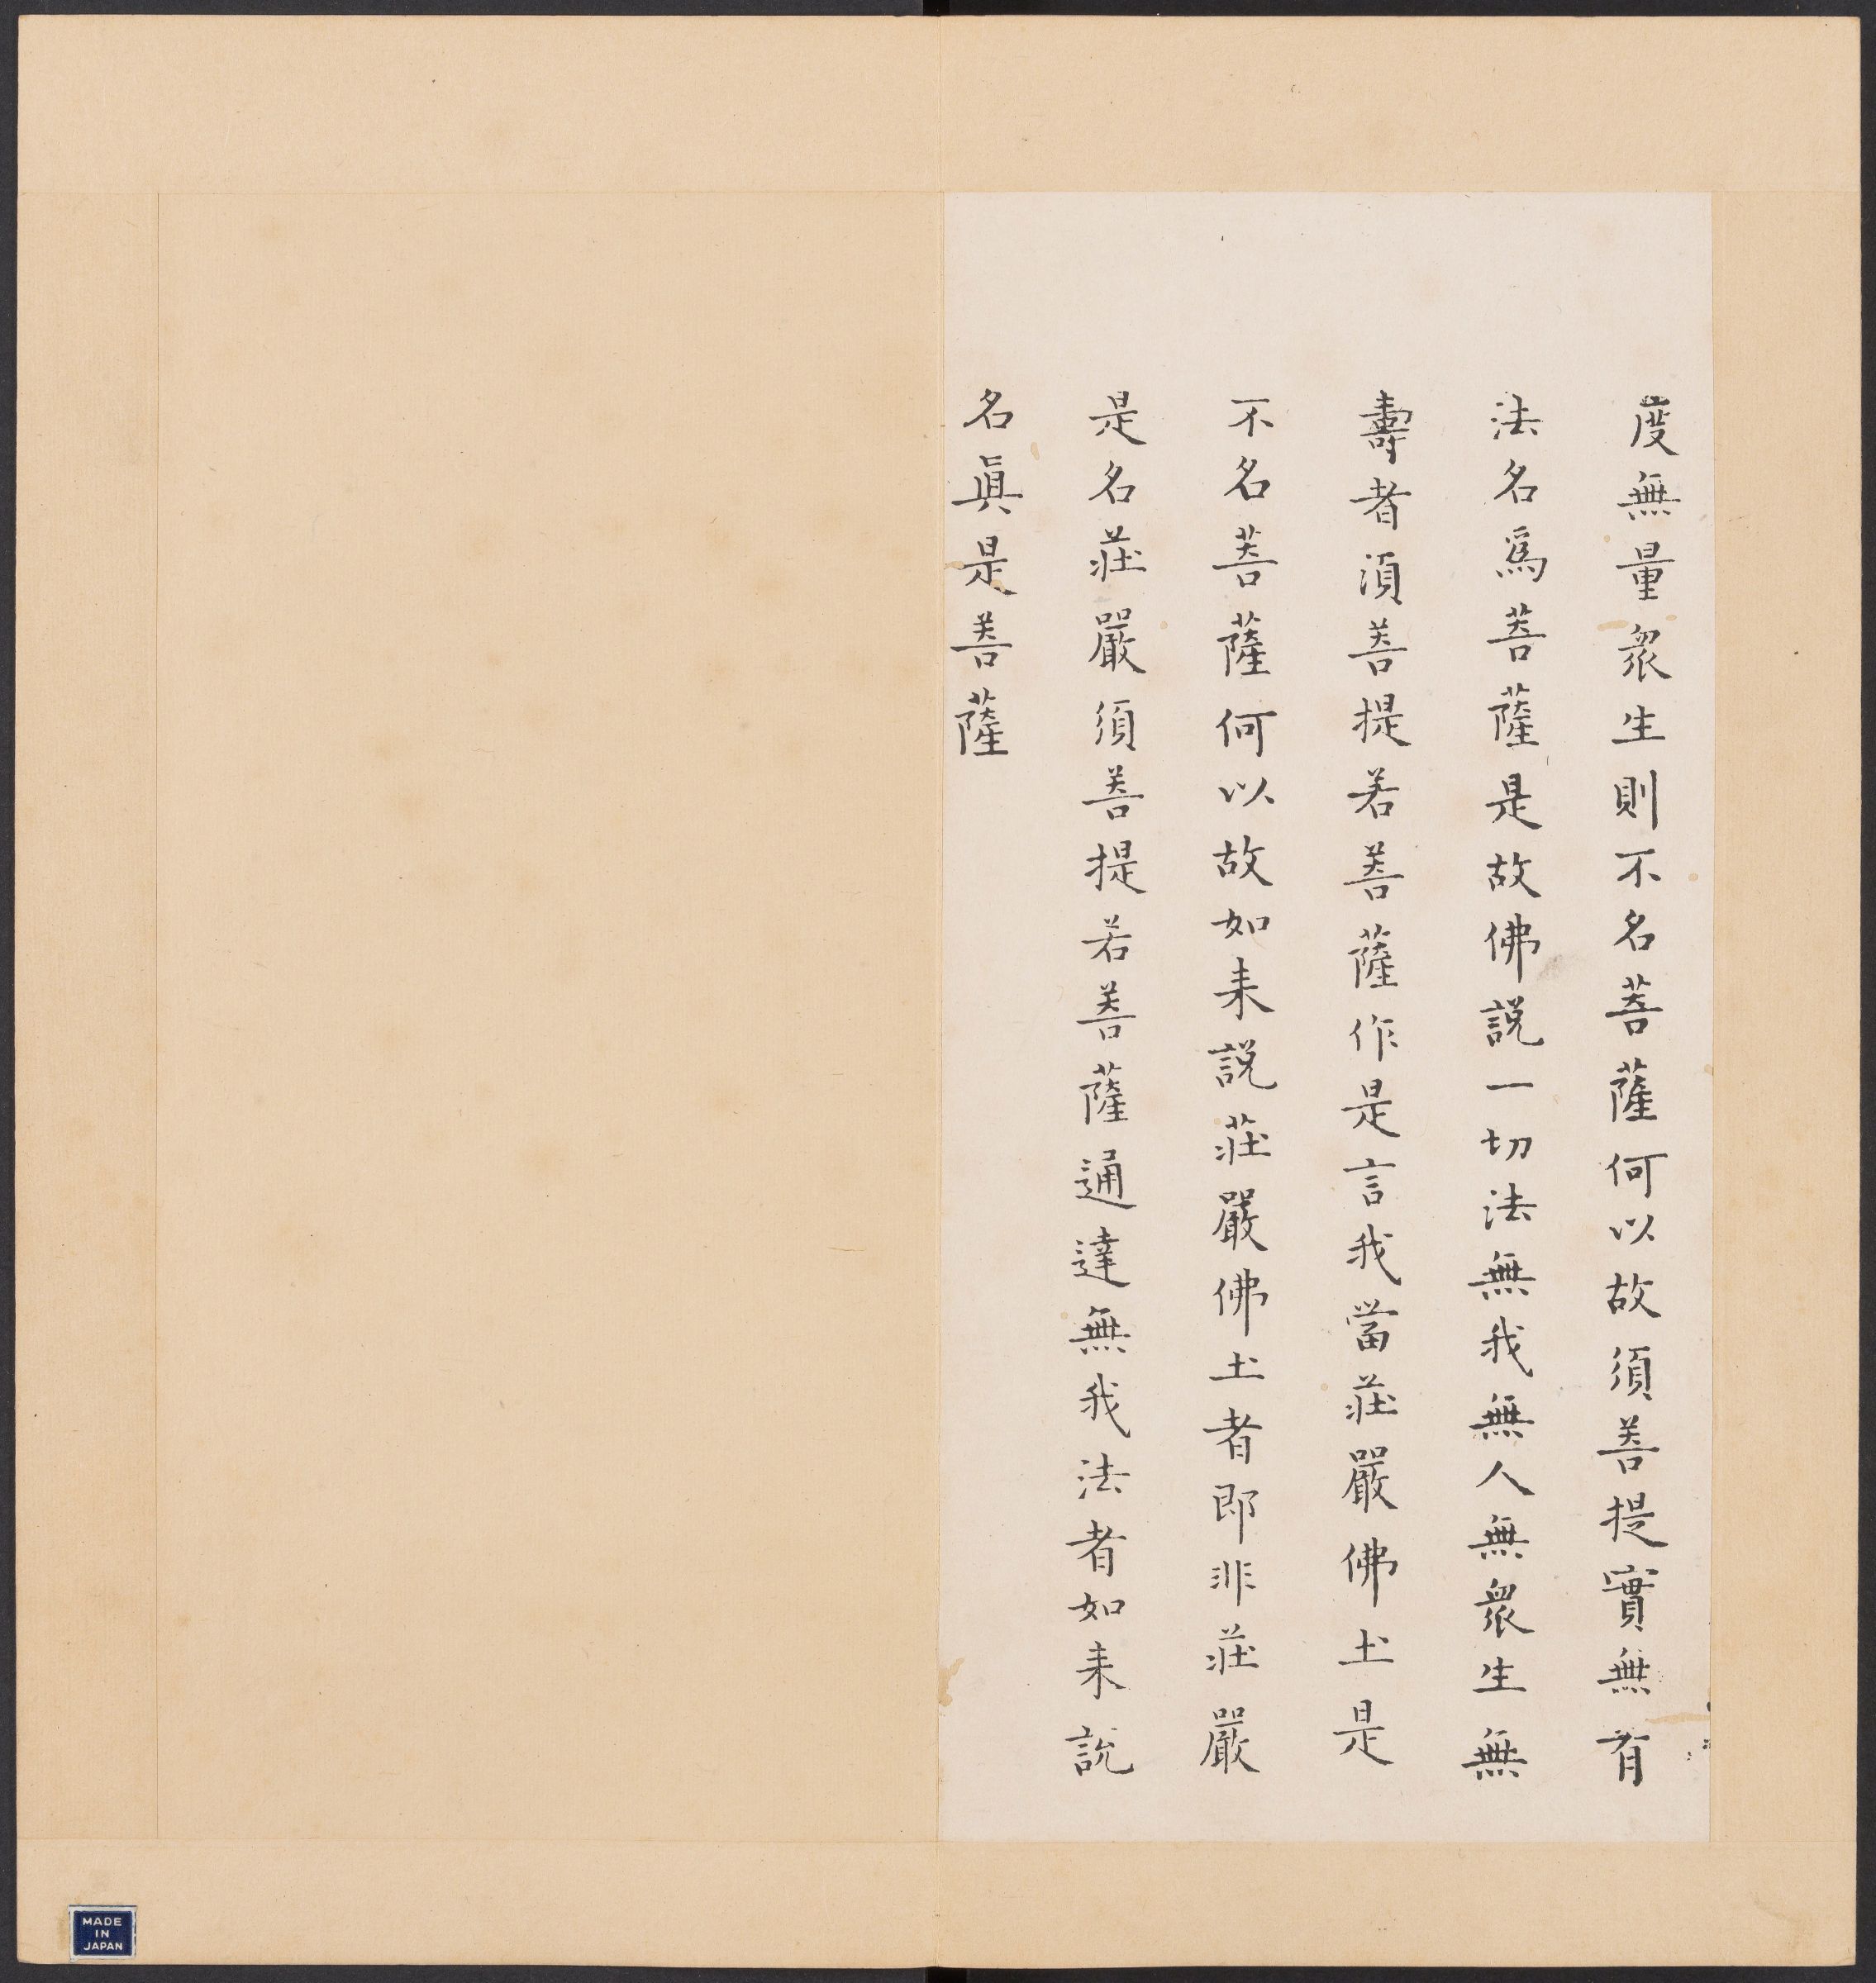 度無量眾生則不名菩薩何以故須菩提實無有
法名爲菩薩是故佛説一切法無我無人無眾生無
壽者湏菩提若菩薩作是言我當莊嚴佛土是
不名菩薩何以故如来説莊嚴佛土者即非莊嚴
是名莊嚴須菩提若菩薩通達無我法者如来説
名眞是菩薩
MADE
IN
JAPAN